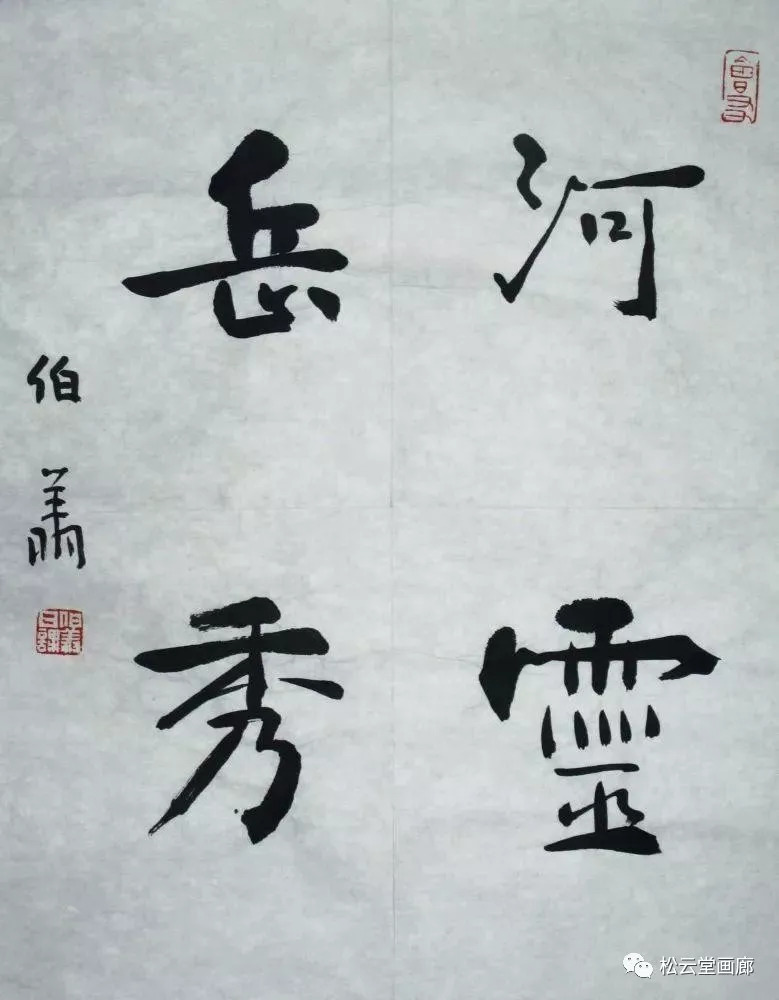 河靈
岳秀
伯
松云堂画廊